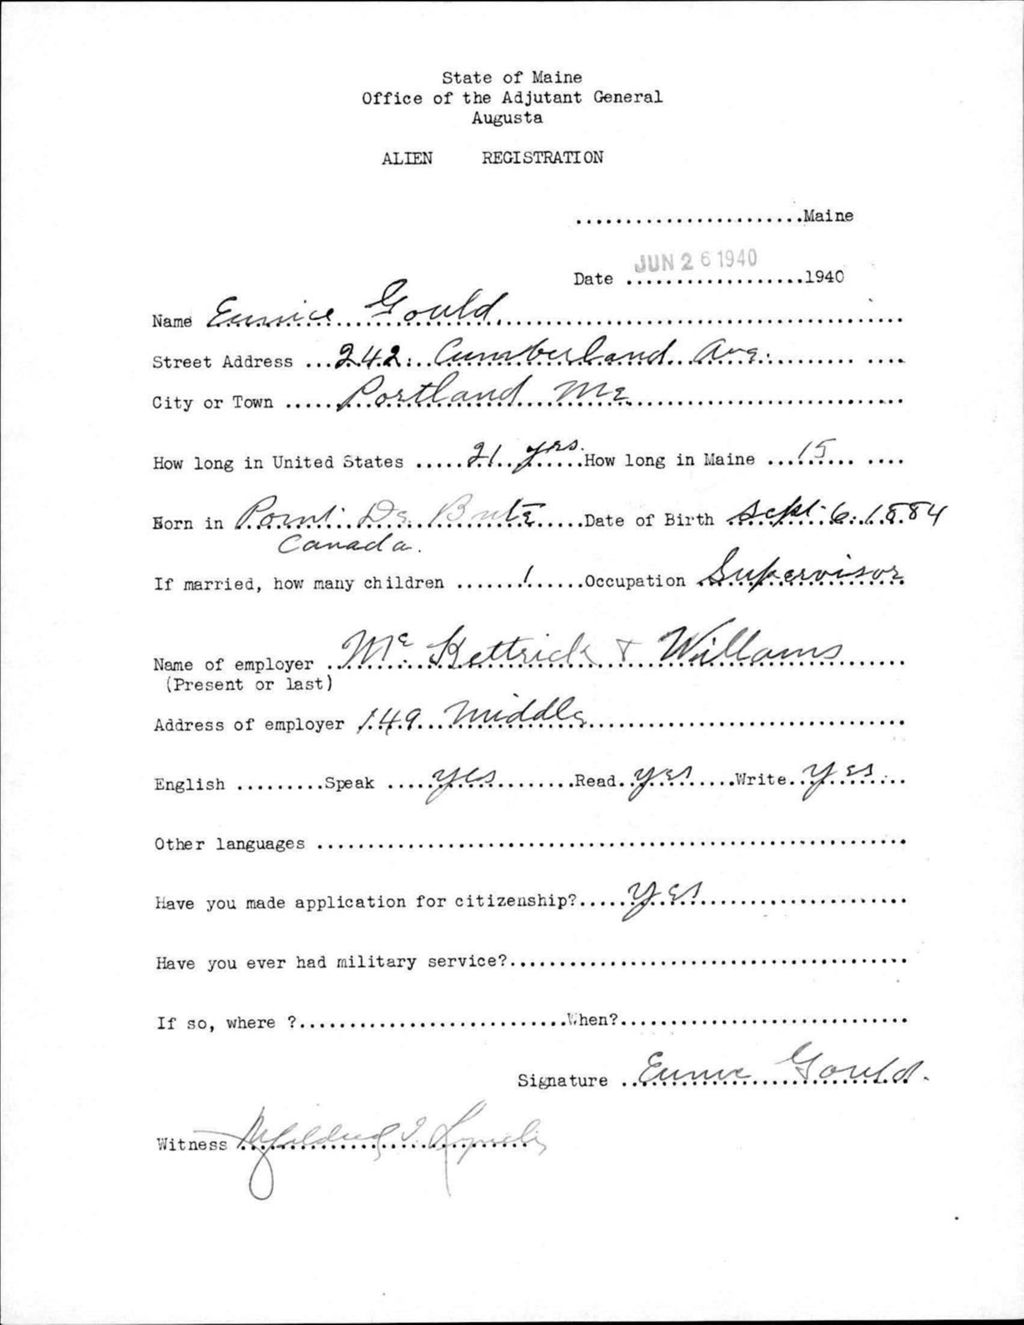 State of Maine
Office of the Adjutant General
Augusta
ALIEN REGISTRATION
.......................Maine
JUN 26 1940
Date ..................1940
Name Eunice Gould
Street Address ...242. Cumberland Ave.
City or Town .....Portland Me
How long in United States .....21 yrs.....How long in Maine ...15... ....
Born in Point De Bute.....Date of Birth Sept. 6. 1884
Canada.
If married, how many children .......1.....Occupation Supervisor
Name of employer ..Mc Kettrick & Willams......
(Present or last)
Address of employer 149 Middle
English .........Speak .....yes.........Read..yes.....Write..yes...
Other languages
Have you made application for citizenship?.....yes
Have you ever had military service?
If so, where ?...........................When?
Signature ..Eunice Gould.
Witness Mildred